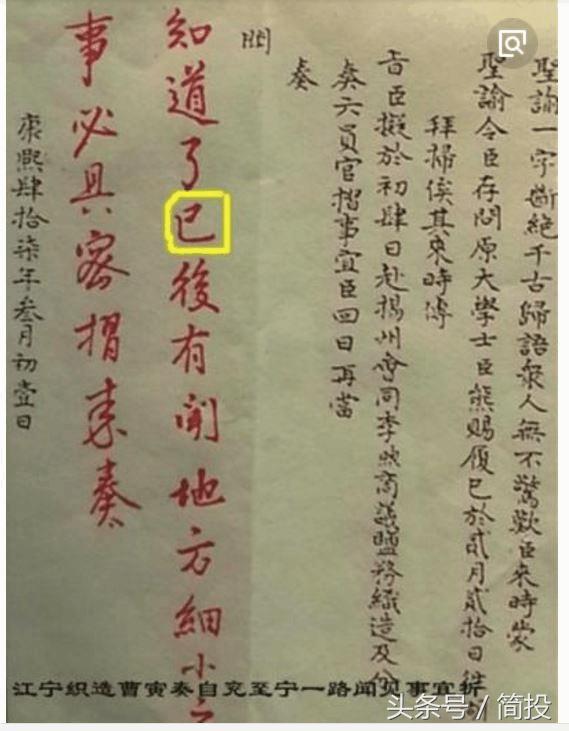 聖諭一字斷絕千古歸語衆人無不驚歎臣來時蒙
聖諭令臣存問原大學士臣熊賜履已於貳月貳拾日
拜掃俟其來時傳
旨臣擬於初肆日赴揚州會同李煦商議鹽務織造及
奏六員官摺事宜臣回日再當
奏
聞
知道了已後有聞地方細小之
事必具密摺來奏
康熙肆拾柒年叁月初壹日
江宁织造曹寅奏自兖至宁一路闻见事宜折
头条号 / 简投